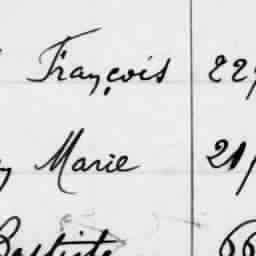 François 22
Marie 21
Baptiste 66